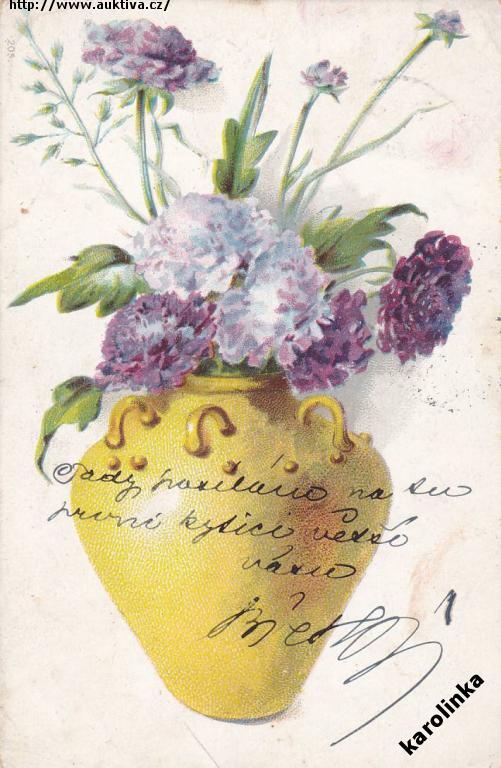 http://www.auktiva.cz/
205
Tady posílám na tu
první kytici větší
vásu
karolinka